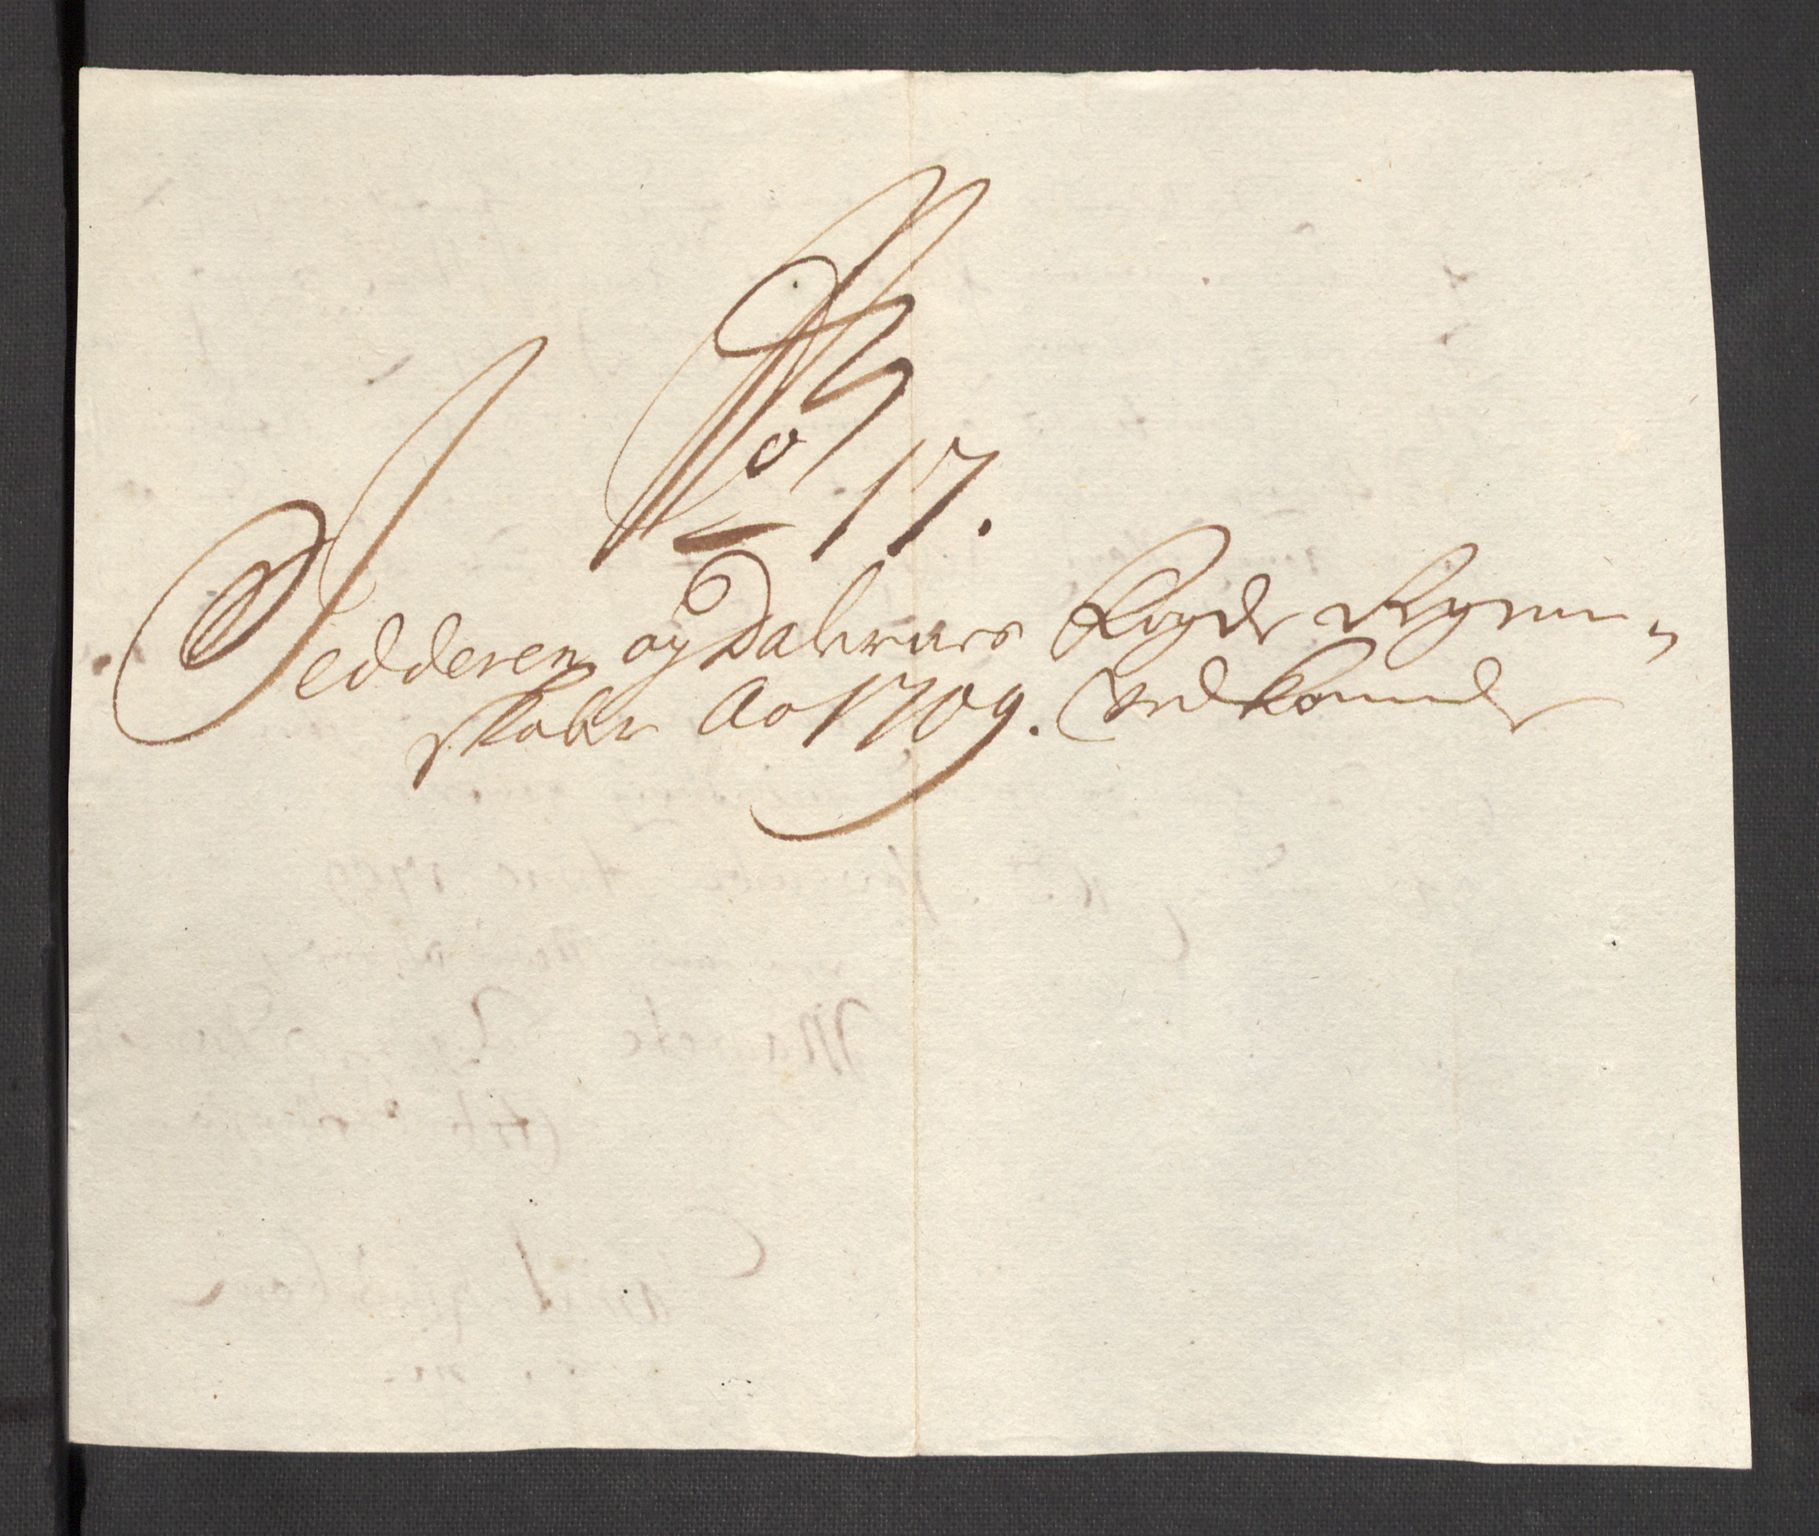 No 17.
Jedderen og Dalernes Fogde Regen-
skaber Ao 1709. Vedkommende